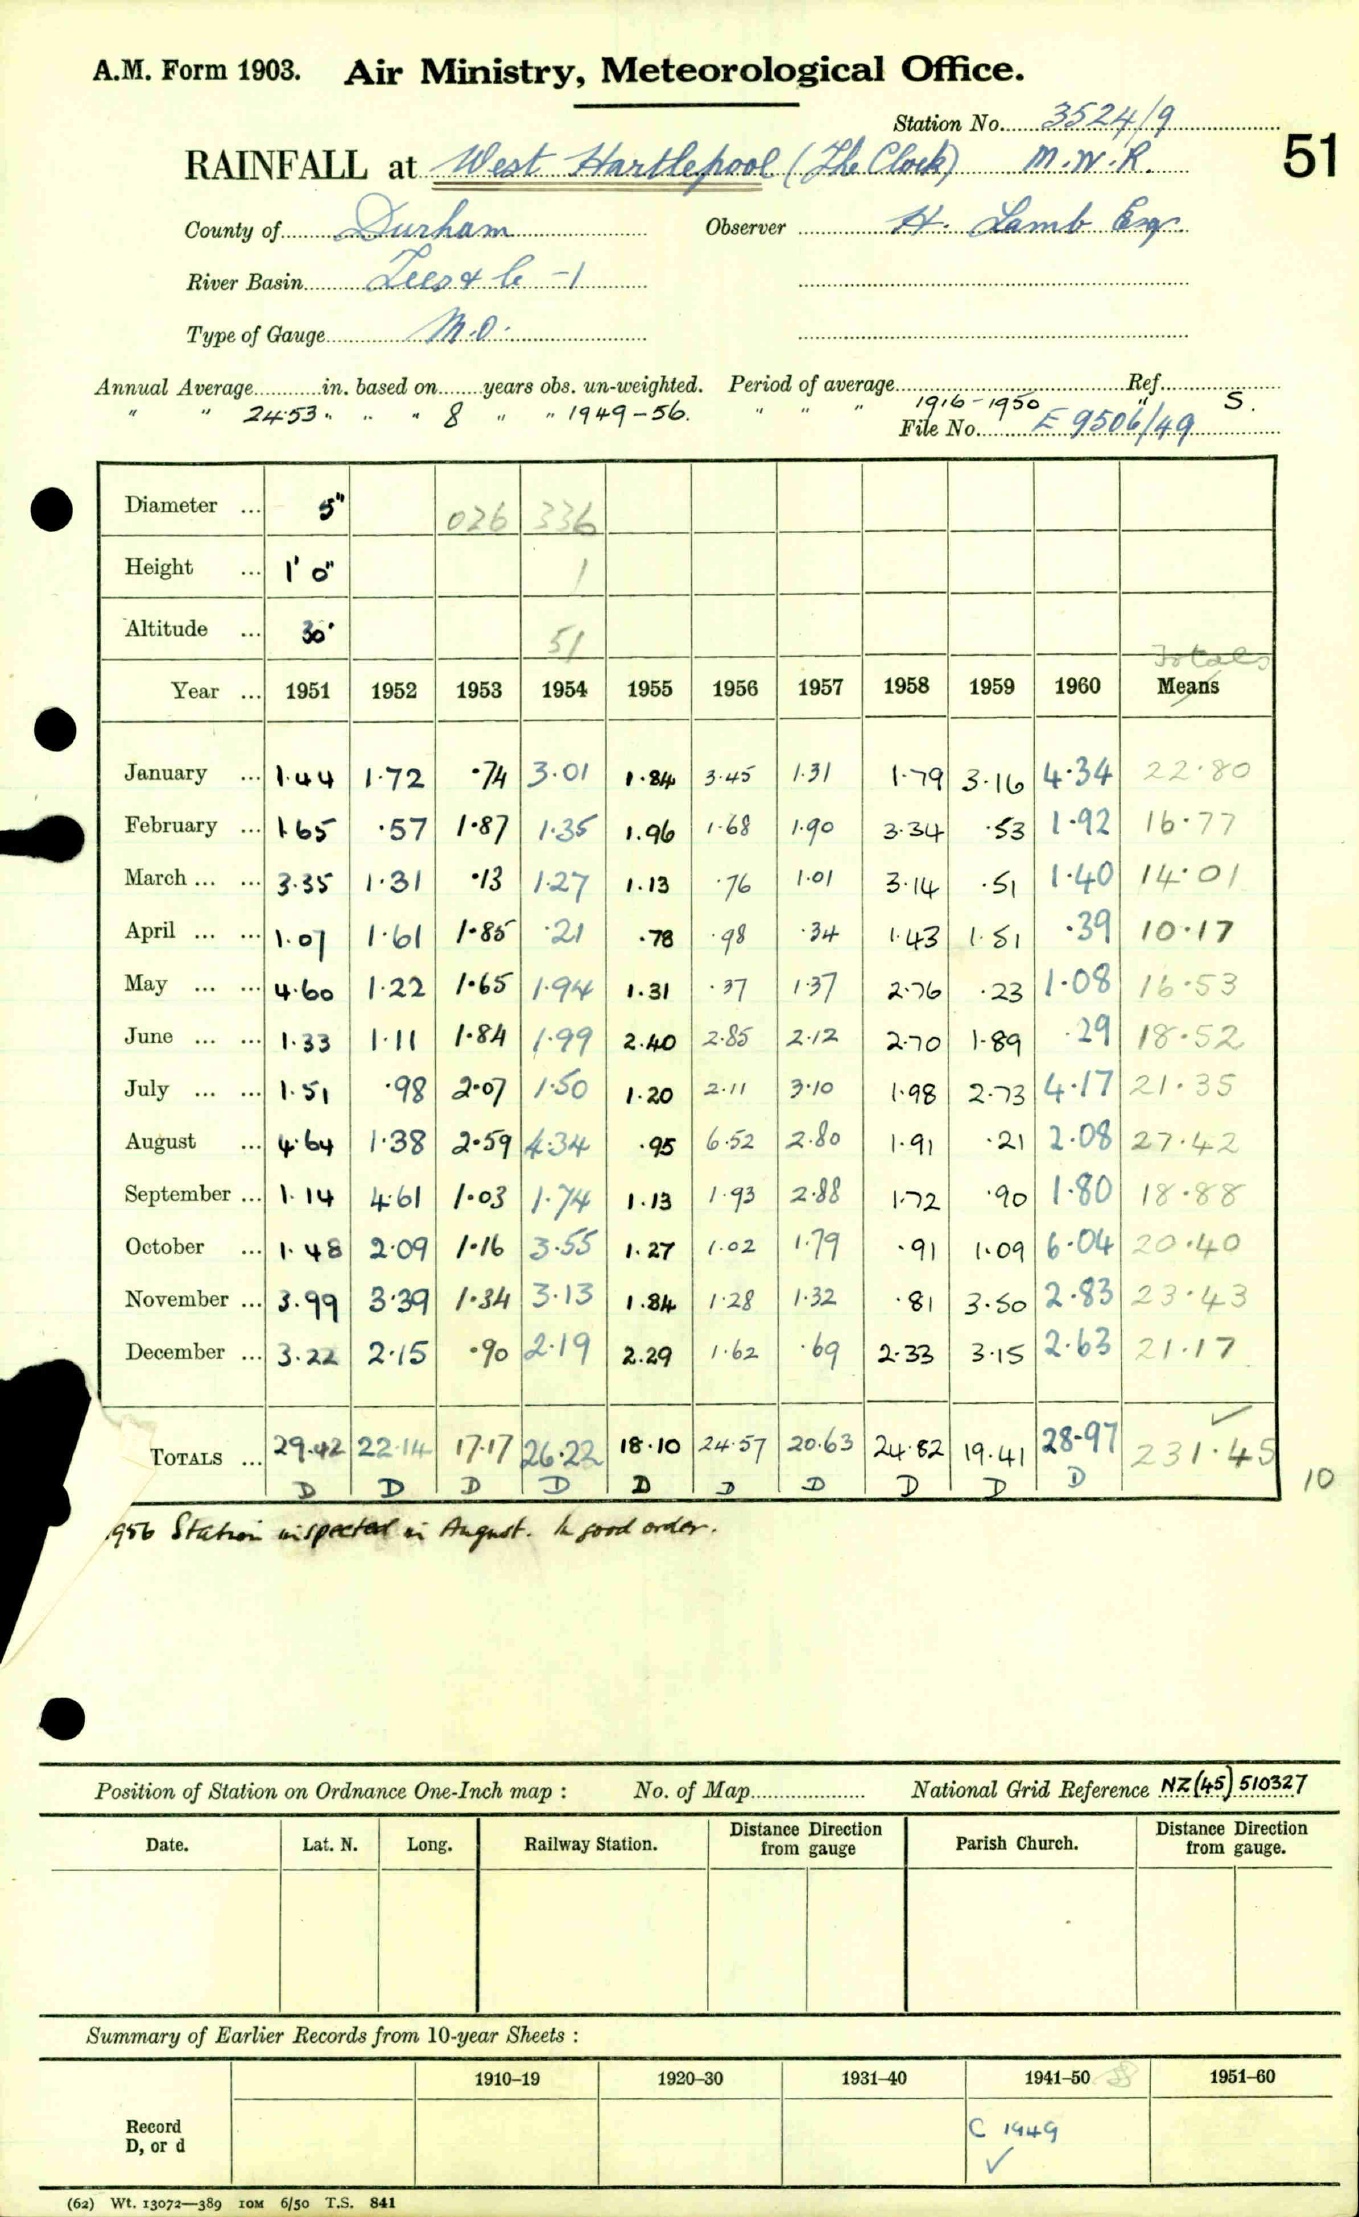 A.M. Form 1903. Air Ministry, Meteorological Office.
Station No. 3524/9
51
RAINFALL at West Hartlepool (The Clock) M.W.R.
County of Durham Observer H. Lamb Esq.
River Basin Tees & C -1
Type of Gauge M.O.
Annual Average in. based on years obs. un-weighted. Period of average Ref.
" " 24.53 " " " 8 " " 1949-56. " " " 1916-1950 " S.
File No. E 9506/49
Diameter ... 5" 026 336
Height ... 1' 0" 1
Altitude ... 30' 51
Totals
Year ... 1951 1952 1953 1954 1955 1956 1957 1958 1959 1960 Means
January ... 1.44 1.72 .74 3.01 1.84 3.45 1.31 1.79 3.16 4.34 22.80
February ... 1.65 .57 1.87 1.35 1.96 1.68 1.90 3.34 .53 1.92 16.77
March ... ... 3.35 1.31 .13 1.27 1.13 .76 1.01 3.14 .51 1.40 14.01
April ... ... 1.07 1.61 1.85 .21 .78 .98 .34 1.43 1.51 .39 10.17
May ... ... 4.60 1.22 1.65 1.94 1.31 .37 1.37 2.76 .23 1.08 16.53
June ... ... 1.33 1.11 1.84 1.99 2.40 2.85 2.12 2.70 1.89 .29 18.52
July ... ... 1.51 .98 2.07 1.50 1.20 2.11 3.10 1.98 2.73 4.17 21.35
August ... 4.64 1.38 2.59 4.34 .95 6.52 2.80 1.91 .21 2.08 27.42
September ... 1.14 4.61 1.03 1.74 1.13 1.93 2.88 1.72 .90 1.80 18.88
October ... 1.48 2.09 1.16 3.55 1.27 1.02 1.79 .91 1.09 6.04 20.40
November ... 3.99 3.39 1.34 3.13 1.84 1.28 1.32 .81 3.50 2.83 23.43
December ... 3.22 2.15 .90 2.19 2.29 1.62 .69 2.33 3.15 2.63 21.17
TOTALS ... 29.42 22.14 17.17 26.22 18.10 24.57 20.63 24.82 19.41 28.97 231.45
D D D D D D D D D D 10
956 Station inspected in August. In good order.
Position of Station on Ordnance One-Inch map : No. of Map National Grid Reference NZ(45)510327
Date. Lat. N. Long. Railway Station. Distance Direction from gauge Parish Church. Distance Direction from gauge.
Summary of Earlier Records from 10-year Sheets :
1910–19 1920–30 1931–40 1941–50 1951–60
Record
D, or d
C 1949
✓
(62) Wt. 13072—389 10M 6/50 T.S. 841